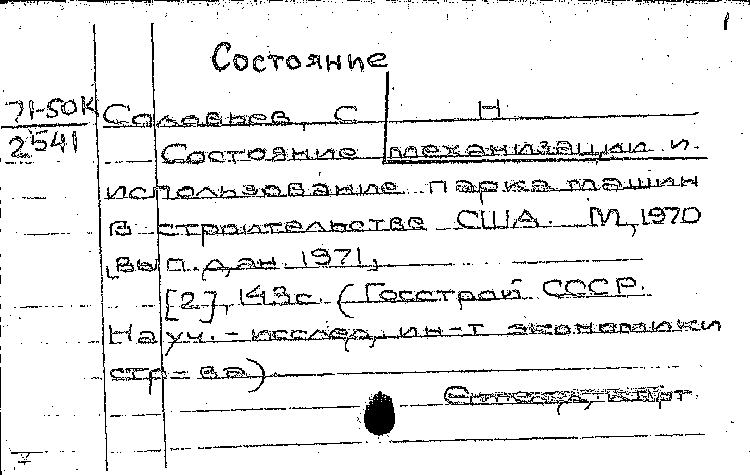 1
Состояние
71-50К
2541
Соловьев, С Н
Состояние механизации и
использование парка машин
в строительстве США. М, 1970
[вып. дан. 1971]
[2], 143с. (Госстрой СССР.
Науч.-исслед, ин-т экономики
стр-ва)